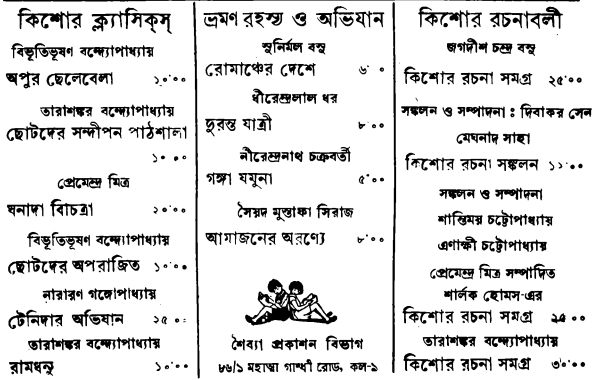 কিশোর ক্ল্যাসিকস্
বিভূতিভূষণ বন্দ্যোপাধ্যায়
অপুর ছেলেবেলা ১০·০০
তারাশঙ্কর বন্দ্যোপাধ্যায়
ছোটদের সন্দীপন পাঠশালা
১০·০০
প্রেমেন্দ্র মিত্র
ঘনাদা বিচিত্রা ২০·০০
বিভূতিভূষণ বন্দ্যোপাধ্যায়
ছোটদের অপরাজিত ১০·০০
নারায়ণ গঙ্গোপাধ্যায়
টেনিদার অভিযান ২৫·০০
তারাশঙ্কর বন্দ্যোপাধ্যায়
রামধনু ১০·০০
ভ্রমণ রহস্য ও অভিযান
সুনির্মল বসু
রোমাঞ্চের দেশে ৬·০০
ধীরেন্দ্রলাল ধর
দুরন্ত যাত্রী ৮·০০
নীরেন্দ্রনাথ চক্রবর্তী
গঙ্গা যমুনা ৫·০০
সৈয়দ মুস্তাফা সিরাজ
আমাজনের অরণ্যে ৮·০০
শৈব্যা প্রকাশন বিভাগ
৮৬/১ মহাত্মা গান্ধী রোড, কল-৯
কিশোর রচনাবলী
জগদীশ চন্দ্র বসু
কিশোর রচনা সমগ্র ২৫·০০
সঙ্কলন ও সম্পাদনা : দিবাকর সেন
মেঘনাদ সাহা
কিশোর রচনা সঙ্কলন ১২·০০
সঙ্কলন ও সম্পাদনা
শান্তিময় চট্টোপাধ্যায়
এণাক্ষী চট্টোপাধ্যায়
প্রেমেন্দ্র মিত্র সম্পাদিত
শার্লক হোমস-এর
কিশোর রচনা সমগ্র ২৫·০০
তারাশঙ্কর বন্দ্যোপাধ্যায়
কিশোর রচনা সমগ্র ৩০·০০